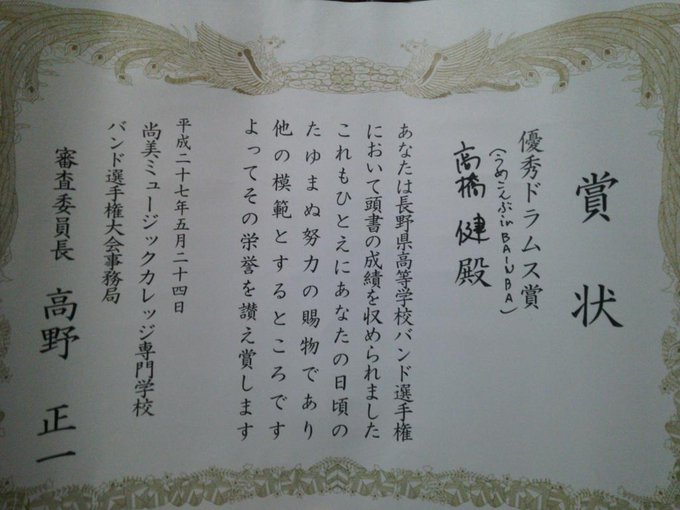 賞状
優秀ドラムス賞
(うめこんぶ in BAINBA)
高橋 健 殿
あなたは長野県高等学校バンド選手権
において頭書の成績を収められました
これもひとえにあなたの日頃の
たゆまぬ努力の賜物であり
他の模範とするところです
よってその栄誉を讃え賞します
平成二十七年五月二十四日
尚美ミュージックカレッジ専門学校
バンド選手権大会事務局
審査委員長 高野 正一